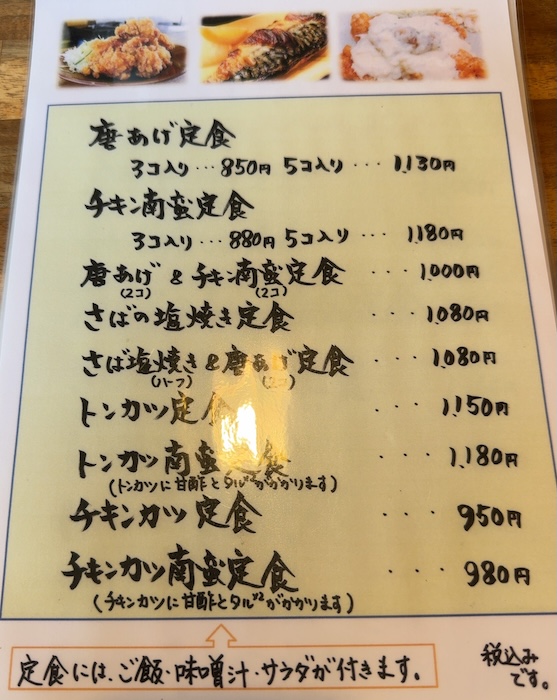 唐あげ定食
3コ入り・・・850円 5コ入り・・・1,130円
チキン南蛮定食
3コ入り・・・880円 5コ入り・・・1,180円
唐あげ & チキン南蛮定食 ・・・1,000円
(2コ) (2コ)
さばの塩焼き定食 ・・・1,080円
さば塩焼き & 唐あげ定食 ・・・1,080円
(ハーフ) (2コ)
トンカツ定食 ・・・1,150円
トンカツ南蛮定食 ・・・1,180円
(トンカツに甘酢とタルタルがかかります)
チキンカツ定食 ・・・950円
チキンカツ南蛮定食 ・・・980円
(チキンカツに甘酢とタルタルがかかります)
定食には、ご飯・味噌汁・サラダが付きます。
税込み
です。